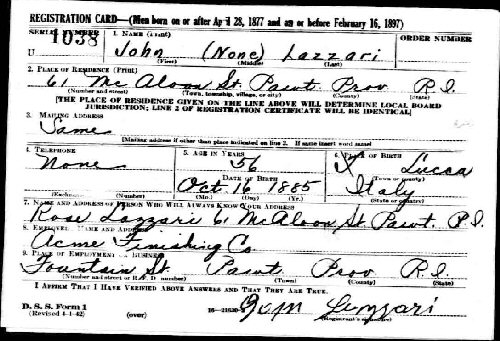 REGISTRATION CARD—(Men born on or after April 28, 1877 and on or before February 16, 1897)
SERIAL NUMBER 1. NAME (Print) ORDER NUMBER
U 1038 John (None) Lazzari
(First) (Middle) (Last)
2. PLACE OF RESIDENCE (Print)
61 McAloon St. Pawt Prov R.I.
(Number and street) (Town, township, village, or city) (County) (State)
[THE PLACE OF RESIDENCE GIVEN ON THE LINE ABOVE WILL DETERMINE LOCAL BOARD
JURISDICTION; LINE 2 OF REGISTRATION CERTIFICATE WILL BE IDENTICAL]
3. MAILING ADDRESS
Same
[Mailing address if other than place indicated on line 2. If same insert word same]
4. TELEPHONE 5. AGE IN YEARS 6. PLACE OF BIRTH
None 56 Lucca
DATE OF BIRTH (Town or county)
Oct 16 1885 Italy
(Exchange) (Number) (Mo.) (Day) (Yr.) (State or country)
7. NAME AND ADDRESS OF PERSON WHO WILL ALWAYS KNOW YOUR ADDRESS
Rose Lazzari 61 McAloon St. Pawt. R.I.
8. EMPLOYER'S NAME AND ADDRESS
Acme Finishing Co
9. PLACE OF EMPLOYMENT OR BUSINESS
Fountain St. Pawt Prov R.I.
(Number and street or R. F. D. number) (Town) (County) (State)
I AFFIRM THAT I HAVE VERIFIED ABOVE ANSWERS AND THAT THEY ARE TRUE.
D. S. S. Form 1
(Revised 4-1-42) (over) (Registrant's signature)